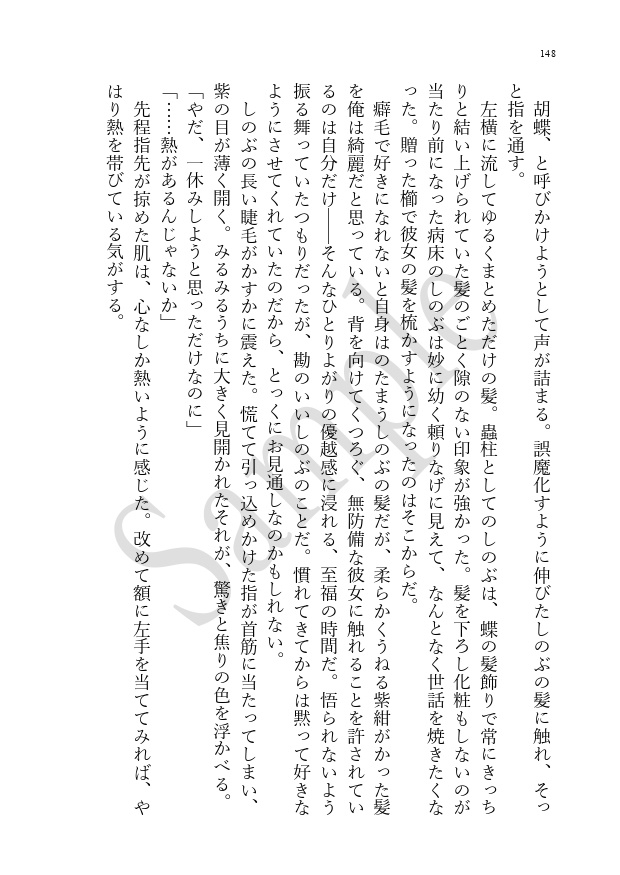 148
胡蝶、と呼びかけようとして声が詰まる。誤魔化すように伸びたしのぶの髪に触れ、そっ
と指を通す。
左横に流してゆるくまとめただけの髪。蟲柱としてのしのぶは、蝶の髪飾りで常にきっち
りと結い上げられていた髪のごく隙のない印象が強かった。髪を下ろし化粧もしないのが
当たり前になった病床のしのぶは妙に幼く頼りなげに見えて、なんとなく世話を焼きたくな
った。贈った櫛で彼女の髪を梳かすようになったのはそこからだ。
癖毛で好きになれないと自身はのたまうしのぶの髪だが、柔らかくうねる紫紺がかった髪
を俺は綺麗だと思っている。背を向けてくつろぐ、無防備な彼女に触れることを許されてい
るのは自分だけ――そんなひとりよがりの優越感に浸れる、至福の時間だ。悟られないよう
振る舞っていたつもりだったが、勘のいいしのぶのことだ。慣れてきてからは黙って好きな
ようにさせてくれていたのだから、とっくにお見通しなのかもしれない。
しのぶの長い睫毛がかすかに震えた。慌てて引っ込めかけた指が首筋に当たってしまい、
紫の目が薄く開く。みるみるうちに大きく見開かれたそれが、驚きと焦りの色を浮かべる。
「やだ、一休みしようと思っただけなのに」
「……熱があるんじゃないか」
先程指先が掠めた肌は、心なしか熱いように感じた。改めて額に左手を当ててみれば、や
はり熱を帯びている気がする。
Sample